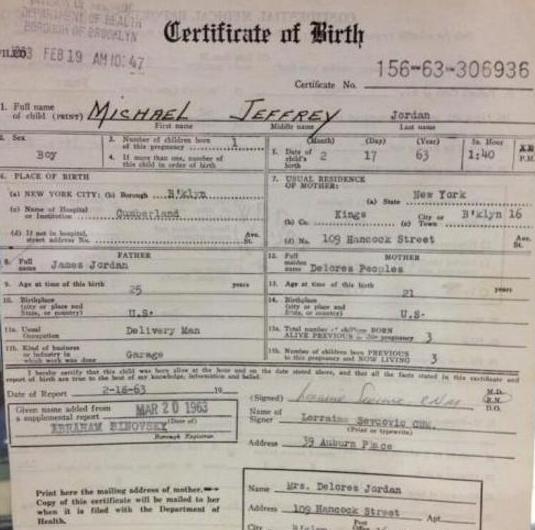 DEPARTMENT OF HEALTH
BOROUGH OF BROOKLYN
1963 FEB 19 AM 10:47
Certificate of Birth
Certificate No. 156-63-306936
1. Full name of child (PRINT) MICHAEL JEFFREY Jordan
First name Middle name Last name
2. Sex Boy
3. Number of children born of this pregnancy 1
4. If more than one, number of this child in order of birth
5. Date of child's birth (Month) 2 (Day) 17 (Year) 63 Hour 1:40 P.M.
6. PLACE OF BIRTH
(a) NEW YORK CITY: (b) Borough B'klyn
(c) Name of Hospital or Institution Cumberland
(d) If not in hospital, street address No. Ave. St.
7. USUAL RESIDENCE OF MOTHER:
(a) State New York
(b) Co. Kings (c) City or Town B'klyn 16
(d) No. 109 Hancock Street Ave. St.
FATHER
8. Full name James Jordan
9. Age at time of this birth 25 years
10. Birthplace (city or place and State, or country) U.S.
11a. Usual Occupation Delivery Man
11b. Kind of business or industry in which work was done Garage
MOTHER
12. Full maiden name Delores Peoples
13. Age at time of this birth 21 years
14. Birthplace (city or place and State, or country) U.S.
15a. Total number of children BORN ALIVE PREVIOUS to this pregnancy 3
15b. Number of children born PREVIOUS to this pregnancy and NOW LIVING 3
I hereby certify that this child was born alive at the hour and on the date stated above, and that all the facts stated in this certificate and
report of birth are true to the best of my knowledge, information and belief.
Date of Report 2-18-63 19
(Signed) M.D. R.N. D.O.
Given name added from a supplemental report MAR 20 1963
(Date of)
ABRAHAM
Borough Registrar
Name of Signer Lorraine CNM.
(Print or typewrite)
Address 39 Auburn Place
Print here the mailing address of mother.
Copy of this certificate will be mailed to her
when it is filed with the Department of
Health.
Name Mrs. Delores Jordan
Address 109 Hancock Street Apt.
City Post